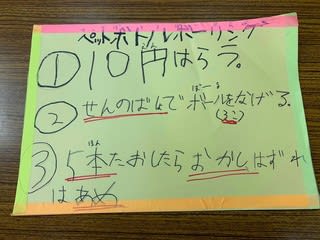 ペットボトルボーリング
① 10円はらう。
② せんのばしょでボールをなげる。
(3こ)
③ 5本たおしたらおかしはずれ
はあめ